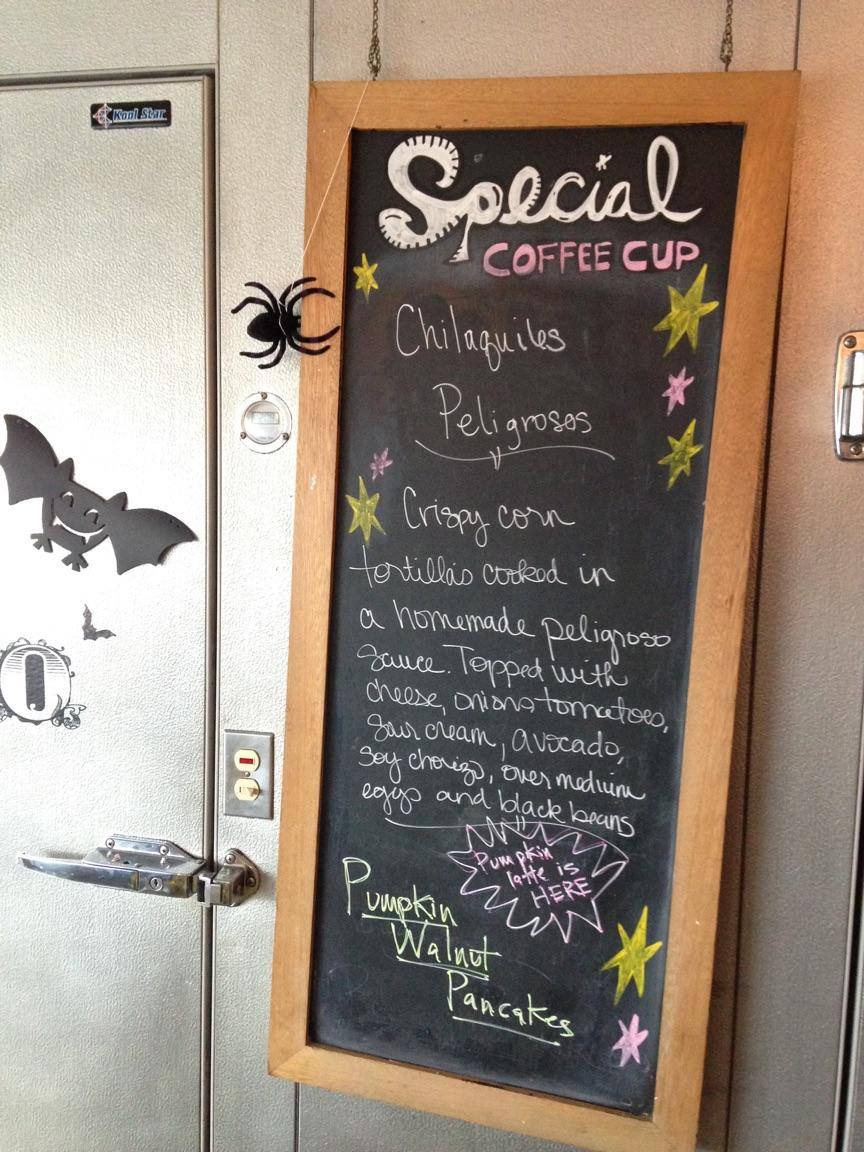 Kool Star
Special
COFFEE CUP
Chilaquiles
Peligrosos
Crispy corn
tortillas cooked in
a homemade peligroso
sauce. Topped with
cheese, onions tomatoes,
sour cream, avocado,
soy chorizo, over medium
eggs and black beans
Pumpkin
latte is
HERE
Pumpkin
Walnut
Pancakes